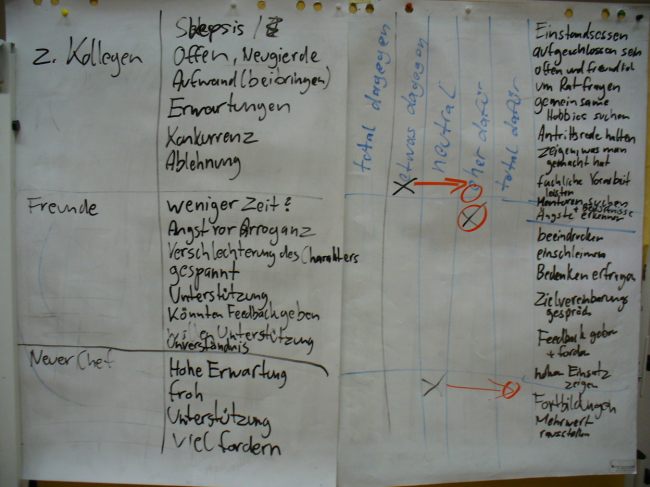 2. Kollegen
Skepsis
Offen, Neugierde
Aufwand (beibringen)
Erwartungen
Konkurrenz
Ablehnung
Freunde
weniger Zeit?
Angst vor Arroganz
Verschlechterung des Charakters
gespannt
Unterstützung
Könnten Feedback geben
wollen Unterstützung
Unverständnis
Neuer Chef
Hohe Erwartung
froh
Unterstützung
viel fordern
total dagegen
etwas dagegen
neutral
eher dafür
total dafür
X
X
X
Einstandsessen
aufgeschlossen sein
offen und freundlich
um Rat fragen
gemeinsame
Hobbies suchen
Antrittsrede halten
zeigen, was man
gemacht hat
fachliche Vorarbeit
leisten
Mentoren suchen
Ängste Bedürfnisse erkennen
beeindrucken
einschleimen
Bedenken erfragen
Zielvereinbarungs
gespräch
Feedback geben
+ fordern
hohen Einsatz
zeigen
Fortbildungen
Mehrwert
rausstellen